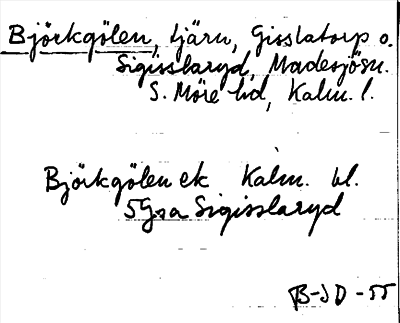 Björkgölen, tjärn, Gisslatorp o.
Sigisslaryd, Madesjö sn.
S. Möre hd, Kalm. l.
Björkgölen ek Kalm. bl.
5 Gsa Sigisslaryd
B-JD-55